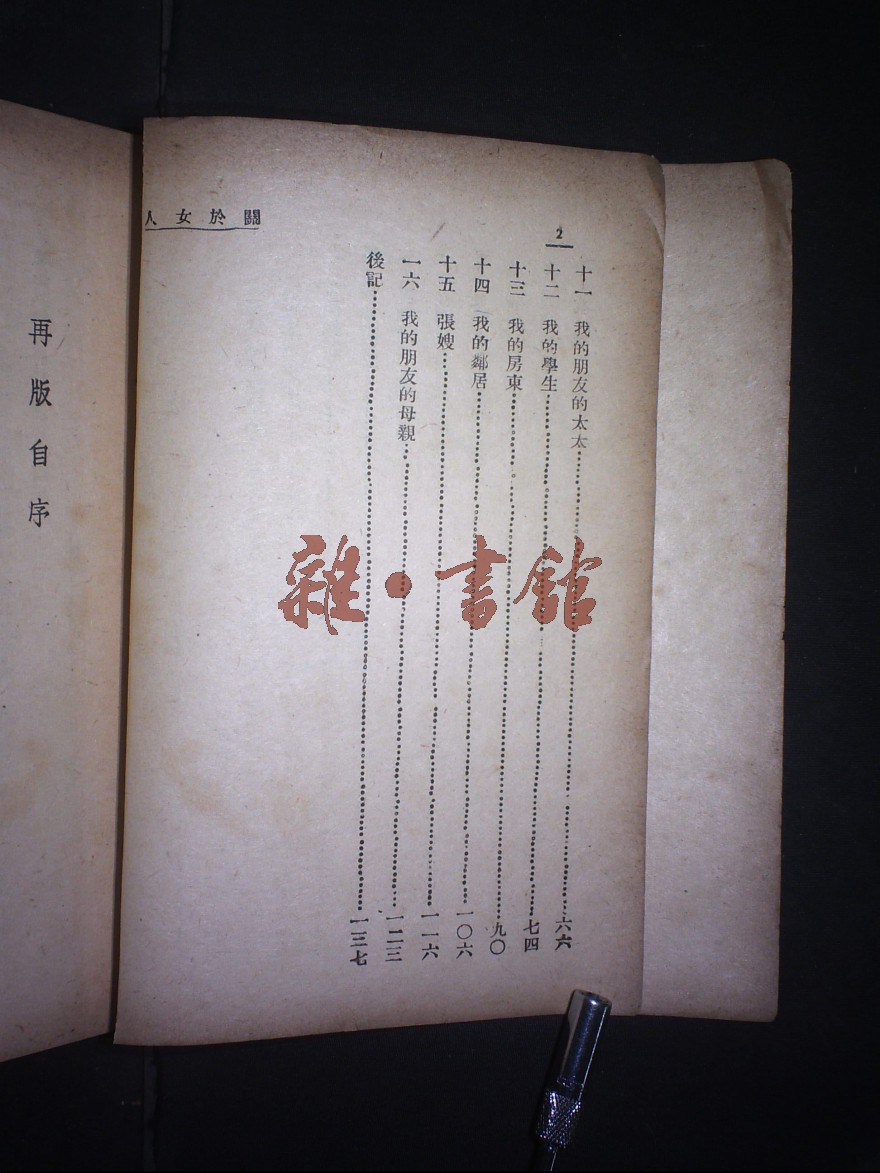 關於女人
2
十一 我的朋友的太太 六六
十二 我的學生 七四
十三 我的房東 九〇
十四 我的鄰居 一〇六
十五 張嫂 一一六
一六 我的朋友的母親 一二三
後記 一三七
再版自序
雜·書館